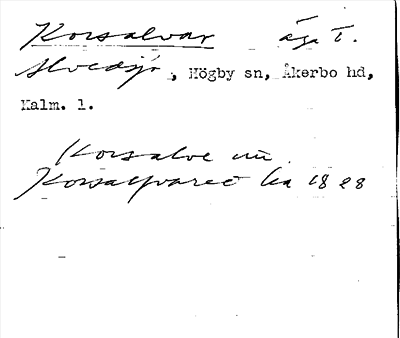 Korsalvar äga t.
Alvedsjö, Högby sn, Åkerbo hd,
Kalm. l.
Korsalve un
Korsalfvaret Ka 1828